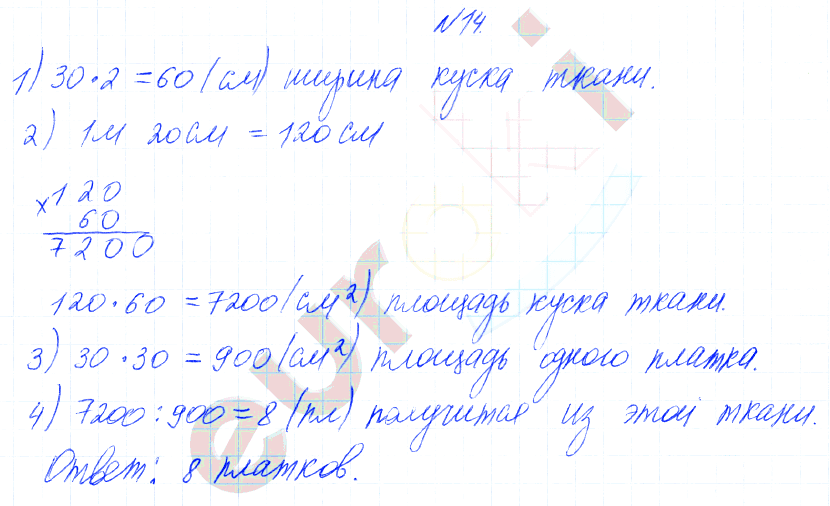 №14.
1) 30·2=60 (см) ширина куска ткани.
2) 1м 20см = 120см
×120
60
7200
120·60 = 7200 (см²) площадь куска ткани.
3) 30·30 = 900 (см²) площадь одного платка.
4) 7200:900=8 (пл) получится из этой ткани.
Ответ: 8 платков.
eurok